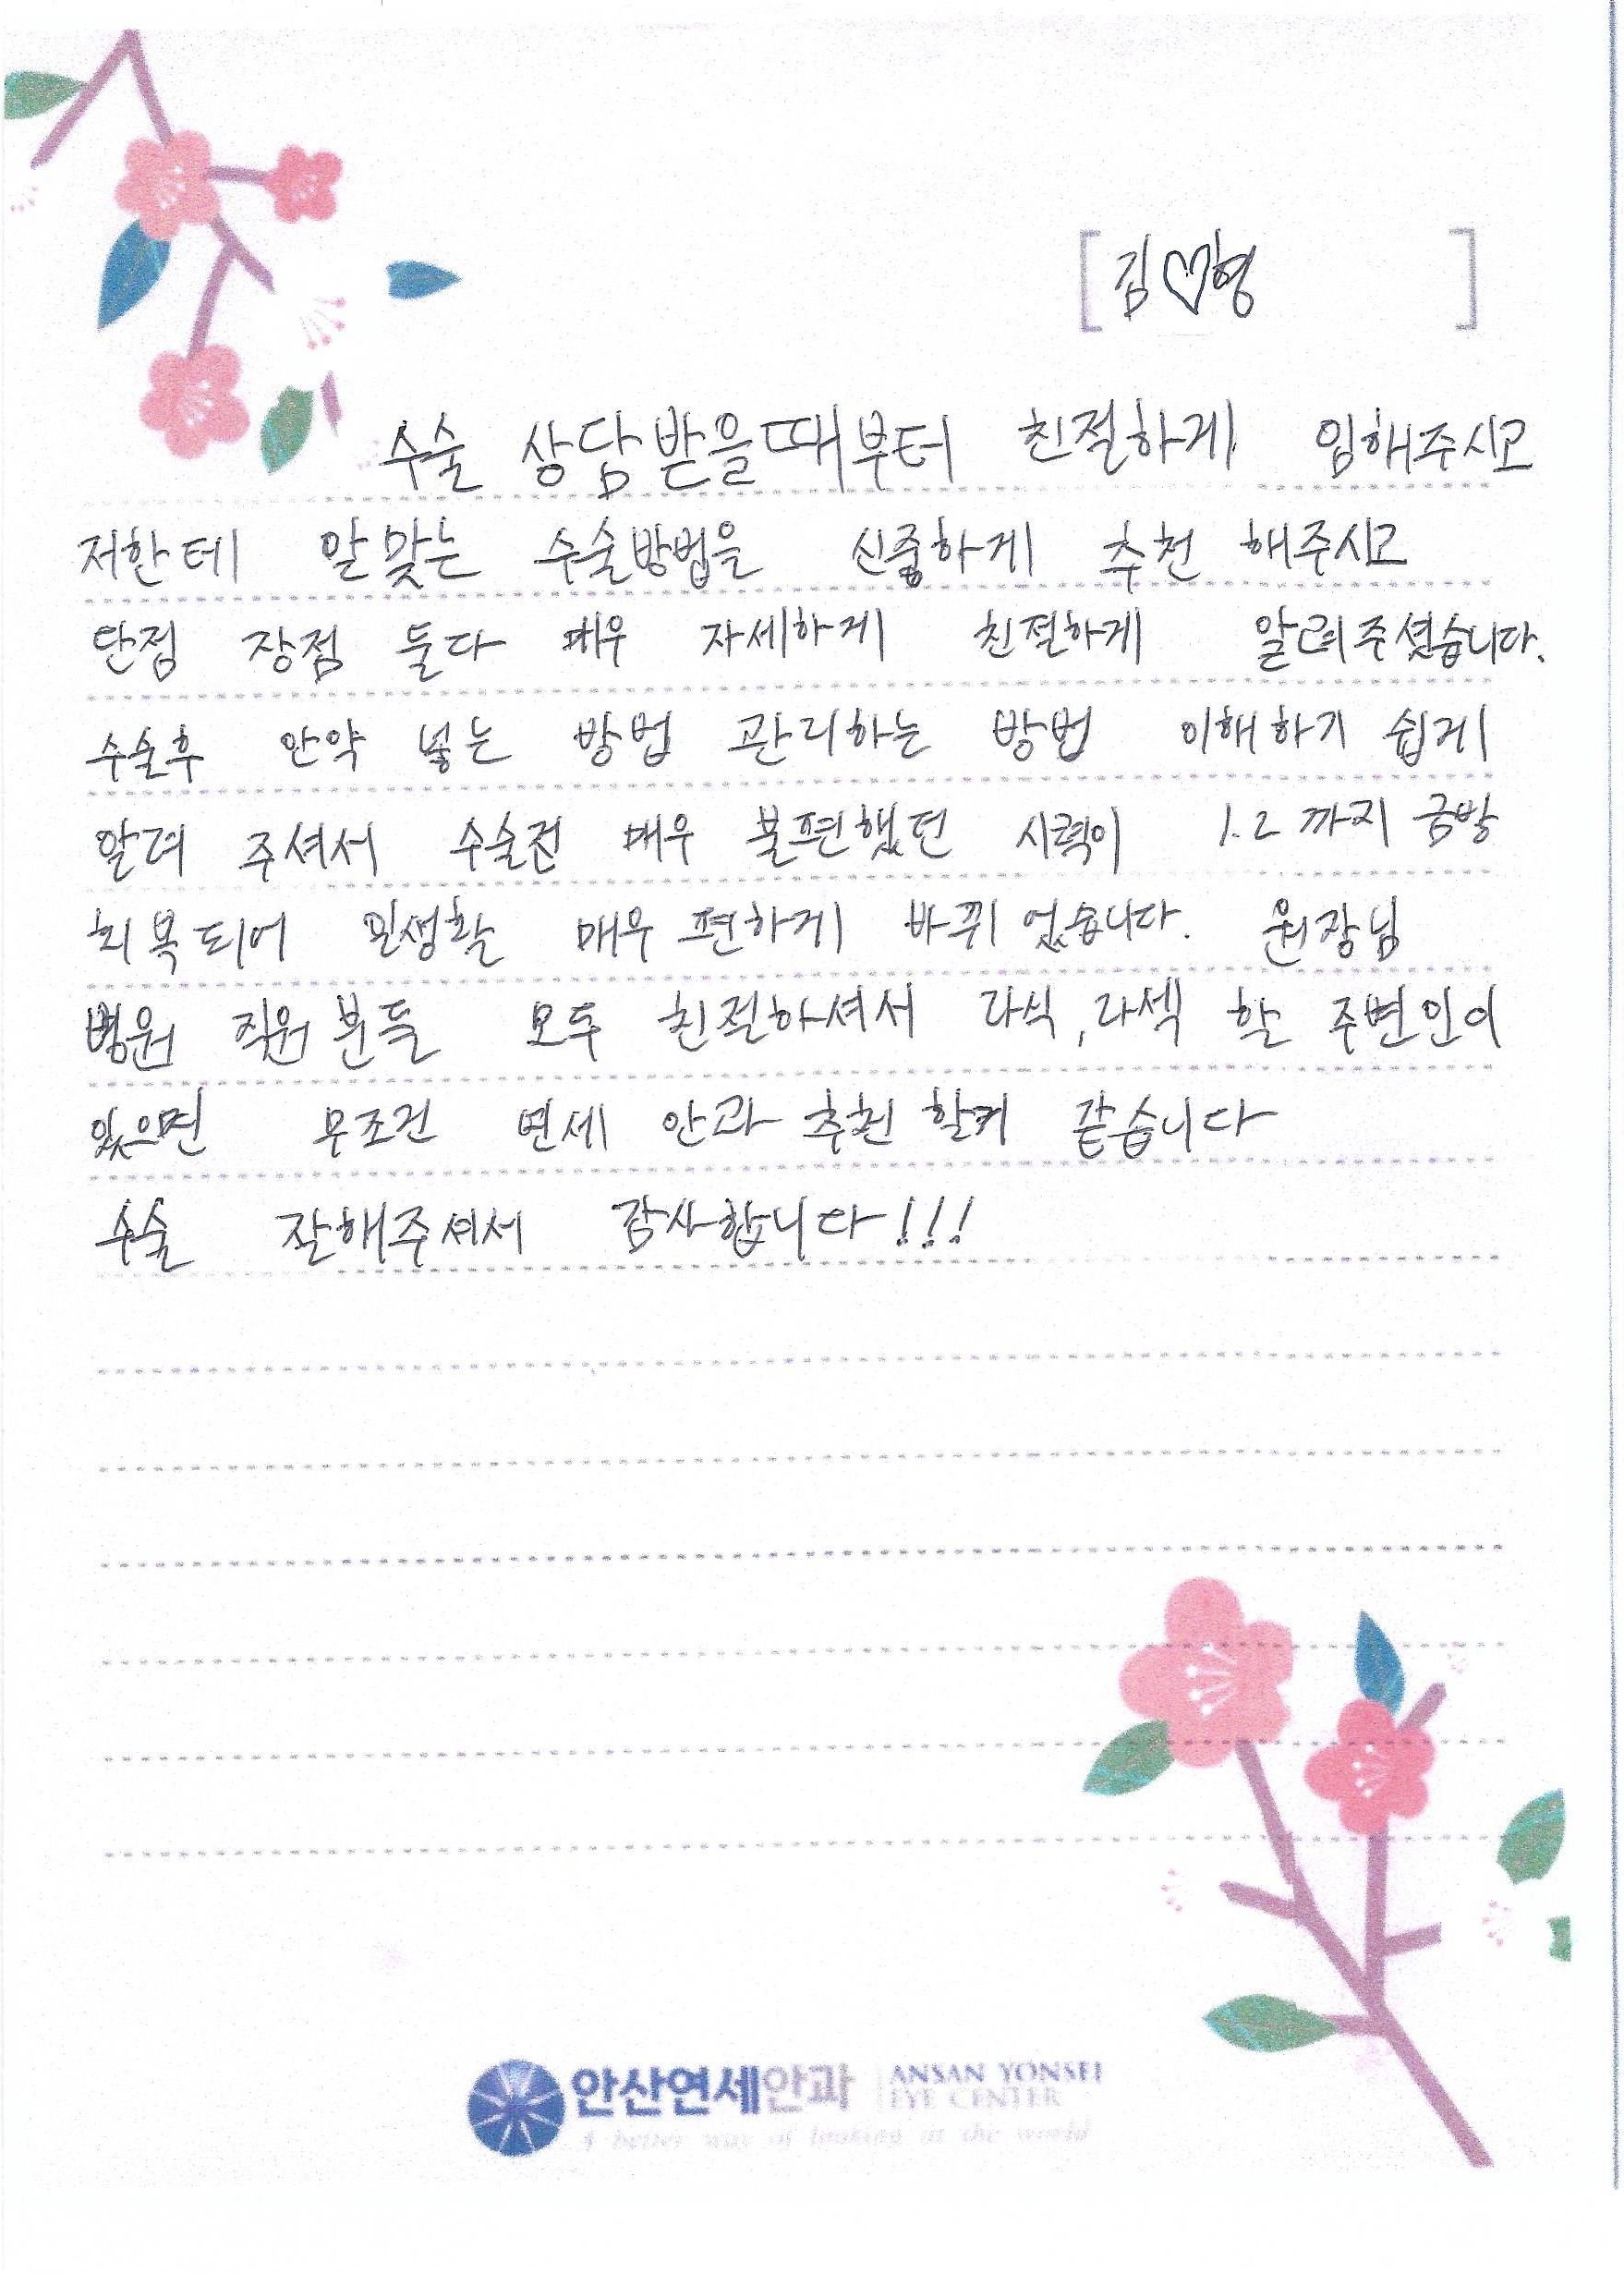 [김♡형]
수술 상담받을때부터 친절하게 임해주시고
저한테 알맞는 수술방법을 신중하게 추천 해주시고
단점 장점 둘다 매우 자세하게 친절하게 알려주셨습니다.
수술후 안약 넣는 방법 관리하는 방법 이해하기 쉽게
알려 주셔서 수술전 매우 불편했던 시력이 1.2 까지 금방
회복되어 일생활 매우 편하게 바뀌었습니다. 원장님
병원 직원분들 모두 친절하셔서 라식,라섹 할 주변인이
있으면 무조건 연세 안과 추천 할꺼 같습니다
수술 잘해주셔서 감사합니다!!!
안산연세안과 ANSAN YONSEI
EYE CENTER
A better way of looking at the world